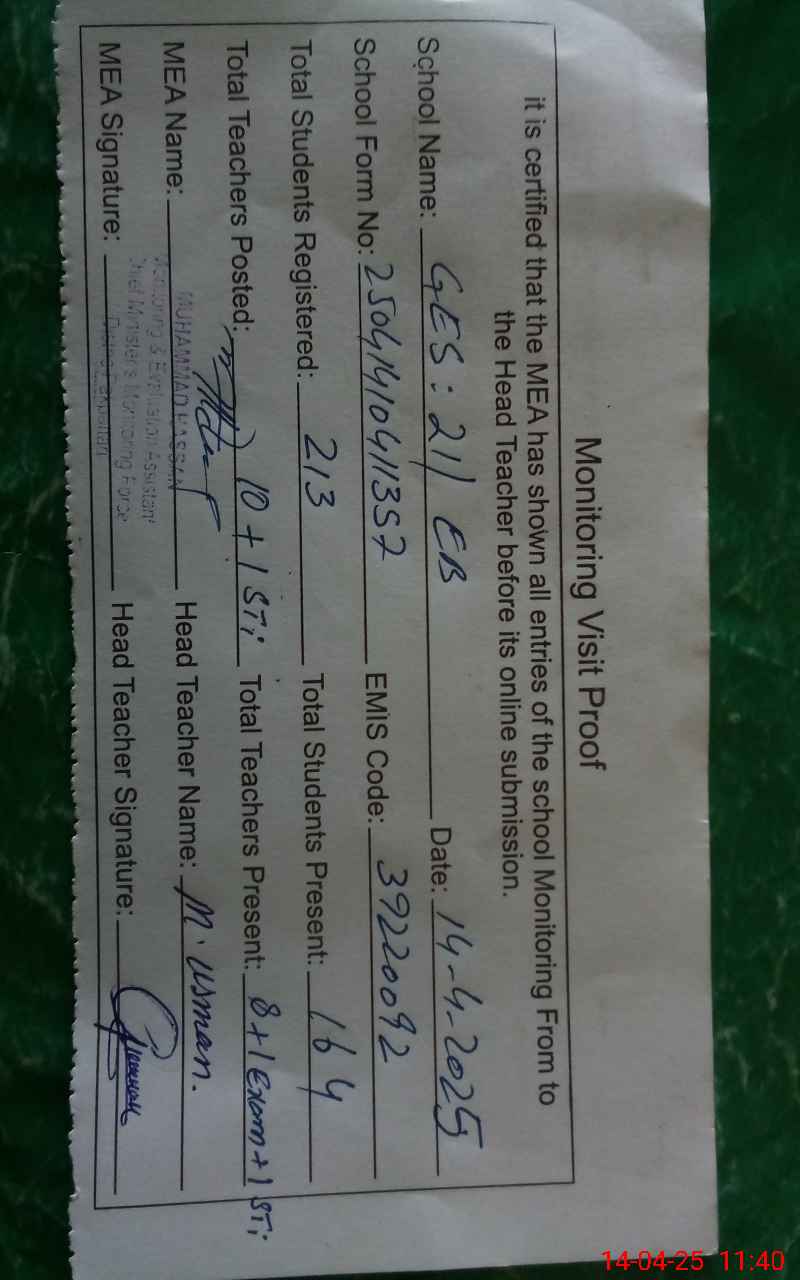 Monitoring Visit Proof
it is certified that the MEA has shown all entries of the school Monitoring From to
the Head Teacher before its online submission.
School Name: GES: 21/ EB Date: 14-4-2025
School Form No: 25041410411357 EMIS Code: 39220092
Total Students Registered: 213 Total Students Present: 164
Total Teachers Posted: 10 + 1 STi Total Teachers Present: 8 + 1 Exam + 1 STi
MEA Name: MUHAMMAD HASSAN Head Teacher Name: M. Usman.
Monitoring & Evaluation Assistant
Chief Minister's Monitoring Force
MEA Signature: Head Teacher Signature:
14-04-25 11:40